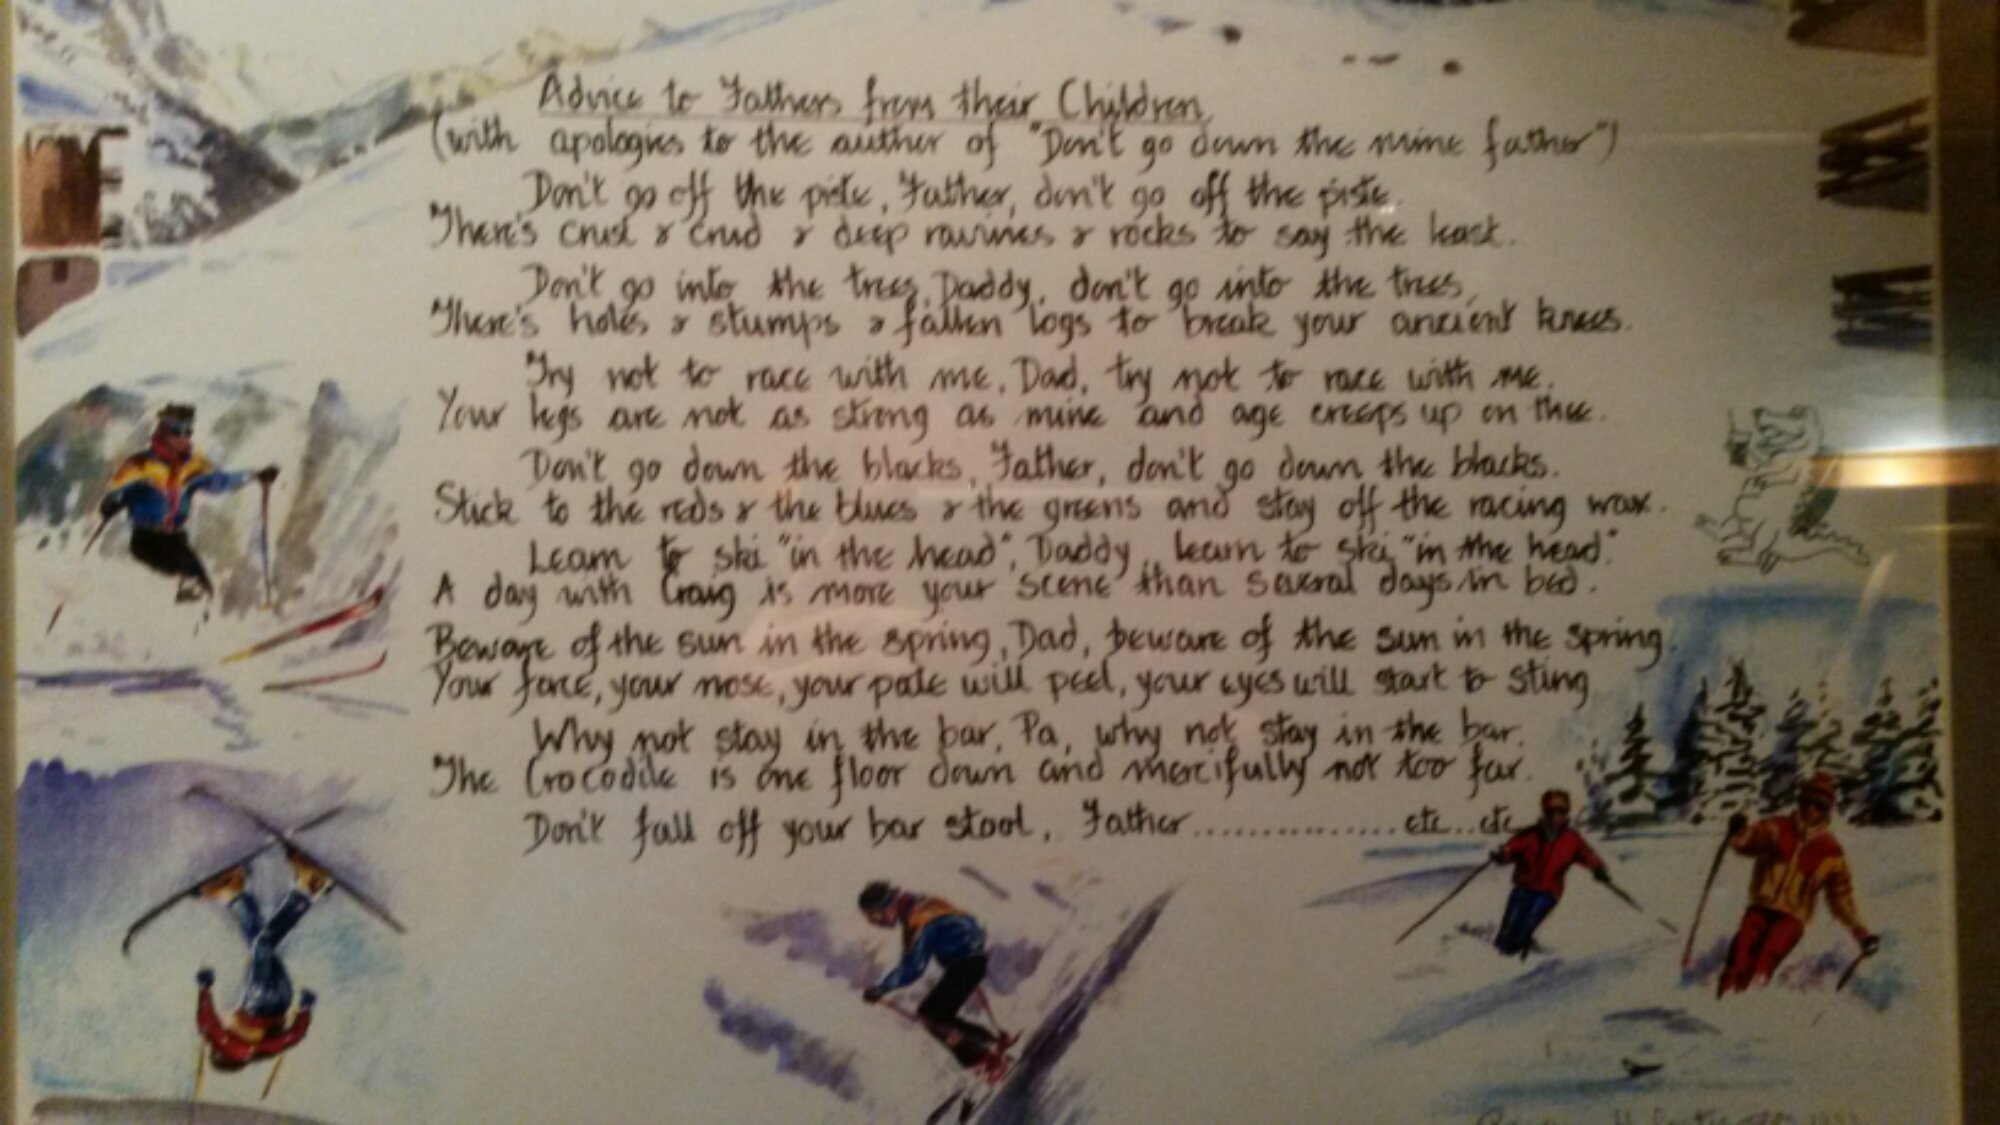 Advice to Fathers from their Children
(with apologies to the author of "Don't go down the mine father")
Don't go off the piste, Father, don't go off the piste.
There's crust & crud & deep ravines & rocks to say the least.
Don't go into the trees, Daddy, don't go into the trees,
There's holes & stumps & fallen logs to break your ancient knees.
Try not to race with me, Dad, try not to race with me.
Your legs are not as strong as mine and age creeps up on thee.
Don't go down the blacks, Father, don't go down the blacks.
Stick to the reds & the blues & the greens and stay off the racing wax.
Learn to ski "in the head", Daddy, learn to ski "in the head".
A day with Craig is more your scene than several days in bed.
Beware of the sun in the spring, Dad, beware of the sun in the spring.
Your face, your nose, your pate will peel, your eyes will start to sting
Why not stay in the bar, Pa, why not stay in the bar.
The Crocodile is one floor down and mercifully not too far.
Don't fall off your bar stool, Father................etc...etc